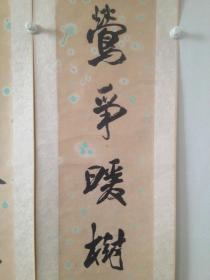 鶯爭暖樹